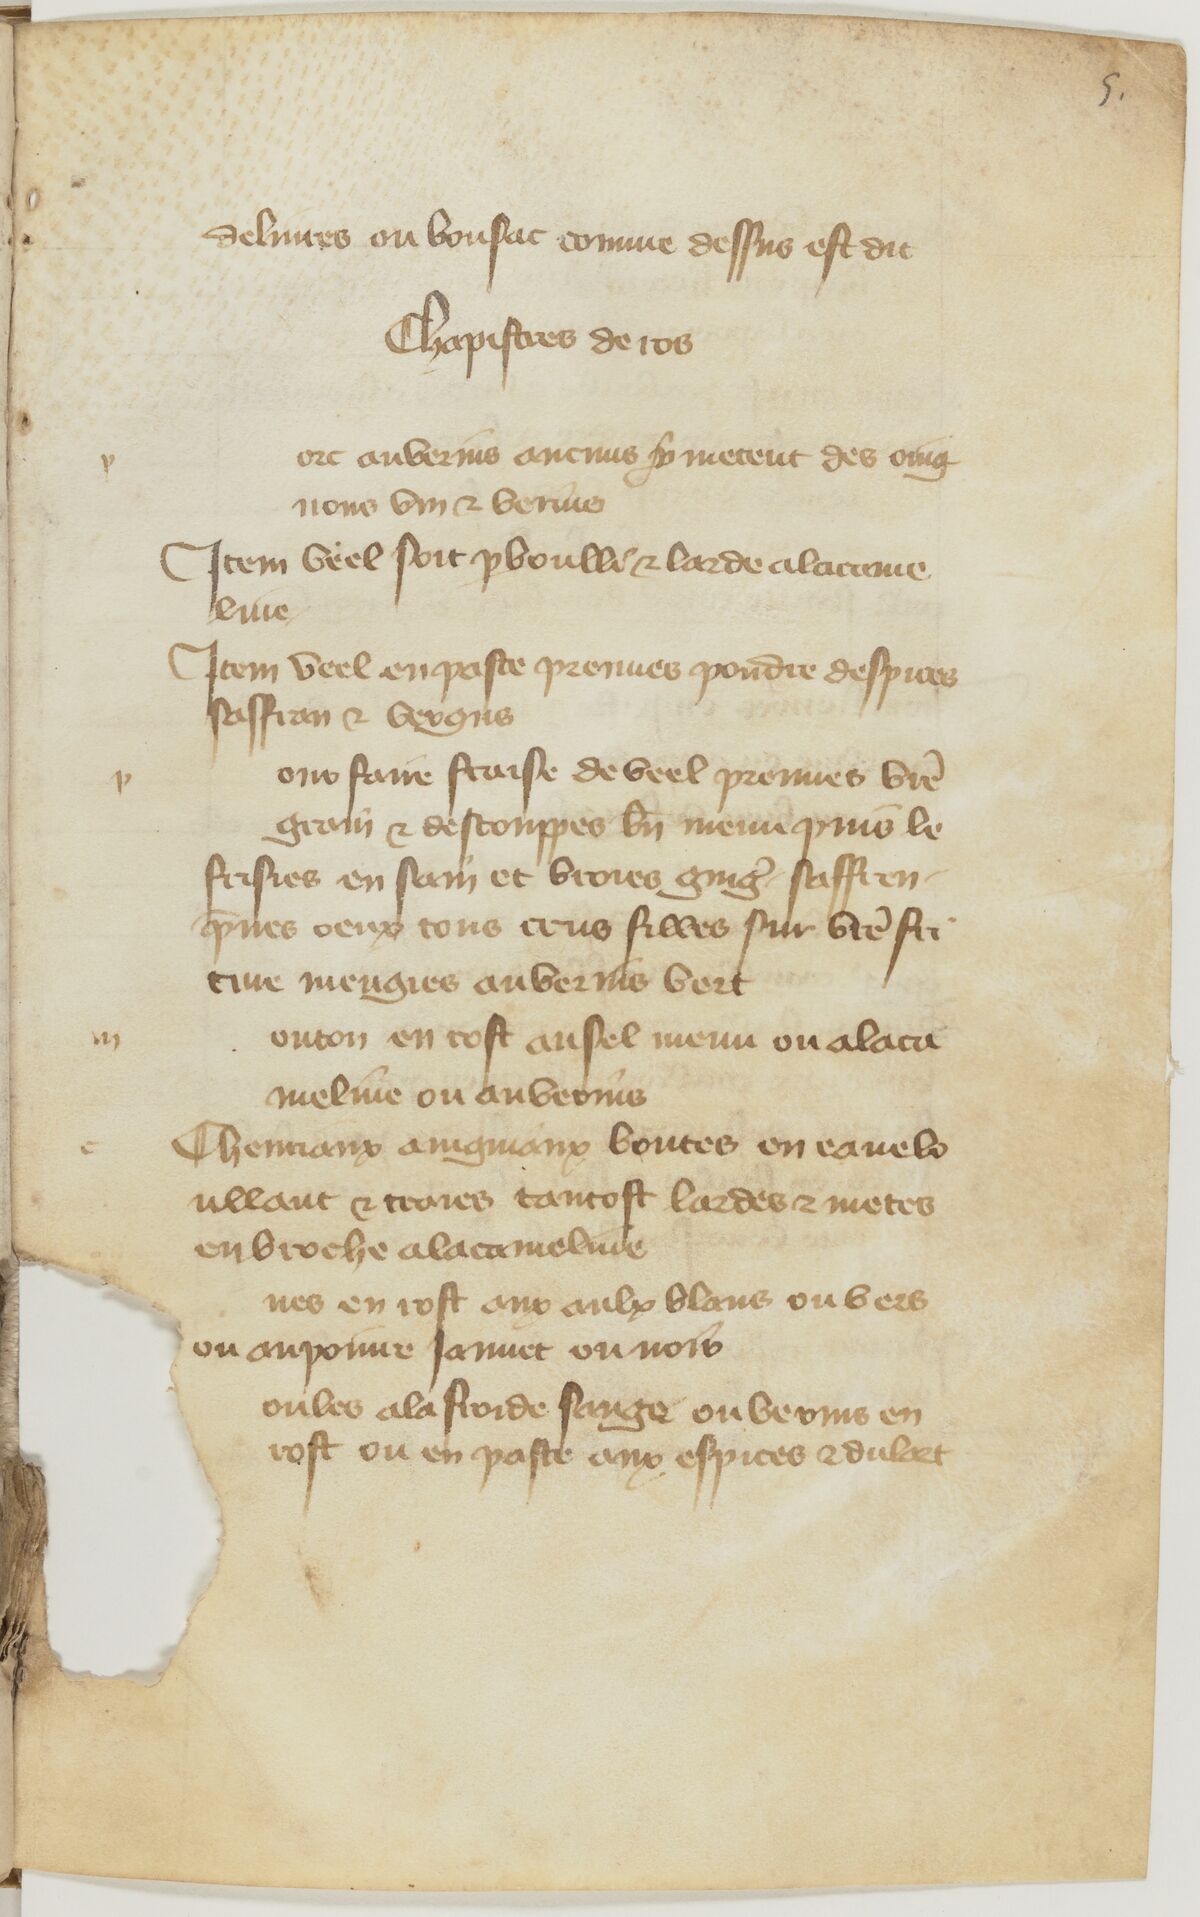 5.
de lievres ou bousac comme dessus est dit
Chapistres de ros
p orc au verius aucuns y metent des oing
nons vin & verius
Item veel soit pboulli & larde a la came
line
Item veel en paste prennes poudre despices
saffran & vergus
p our faire fraise de veel prennes vr̄e
grain & descouppes bn̄ menu puis le
frisies en sain et broies ging̉ saffren
prenes oeux tous crus filles sur vr̄e fri
ture mengies au verius vert
m outon en rost au sel menu ou a la ca
meline ou au verius
c Chevriaux aingniaux boutes en eaue bo
ullant & traies tantost lardes & metes
en broche a la cameline
ues en rost aux aulx blans ou vers
ou au poivre jaunet ou noir
oules a la froide sauge ou verius en
rost ou en paste aux espices & du lart